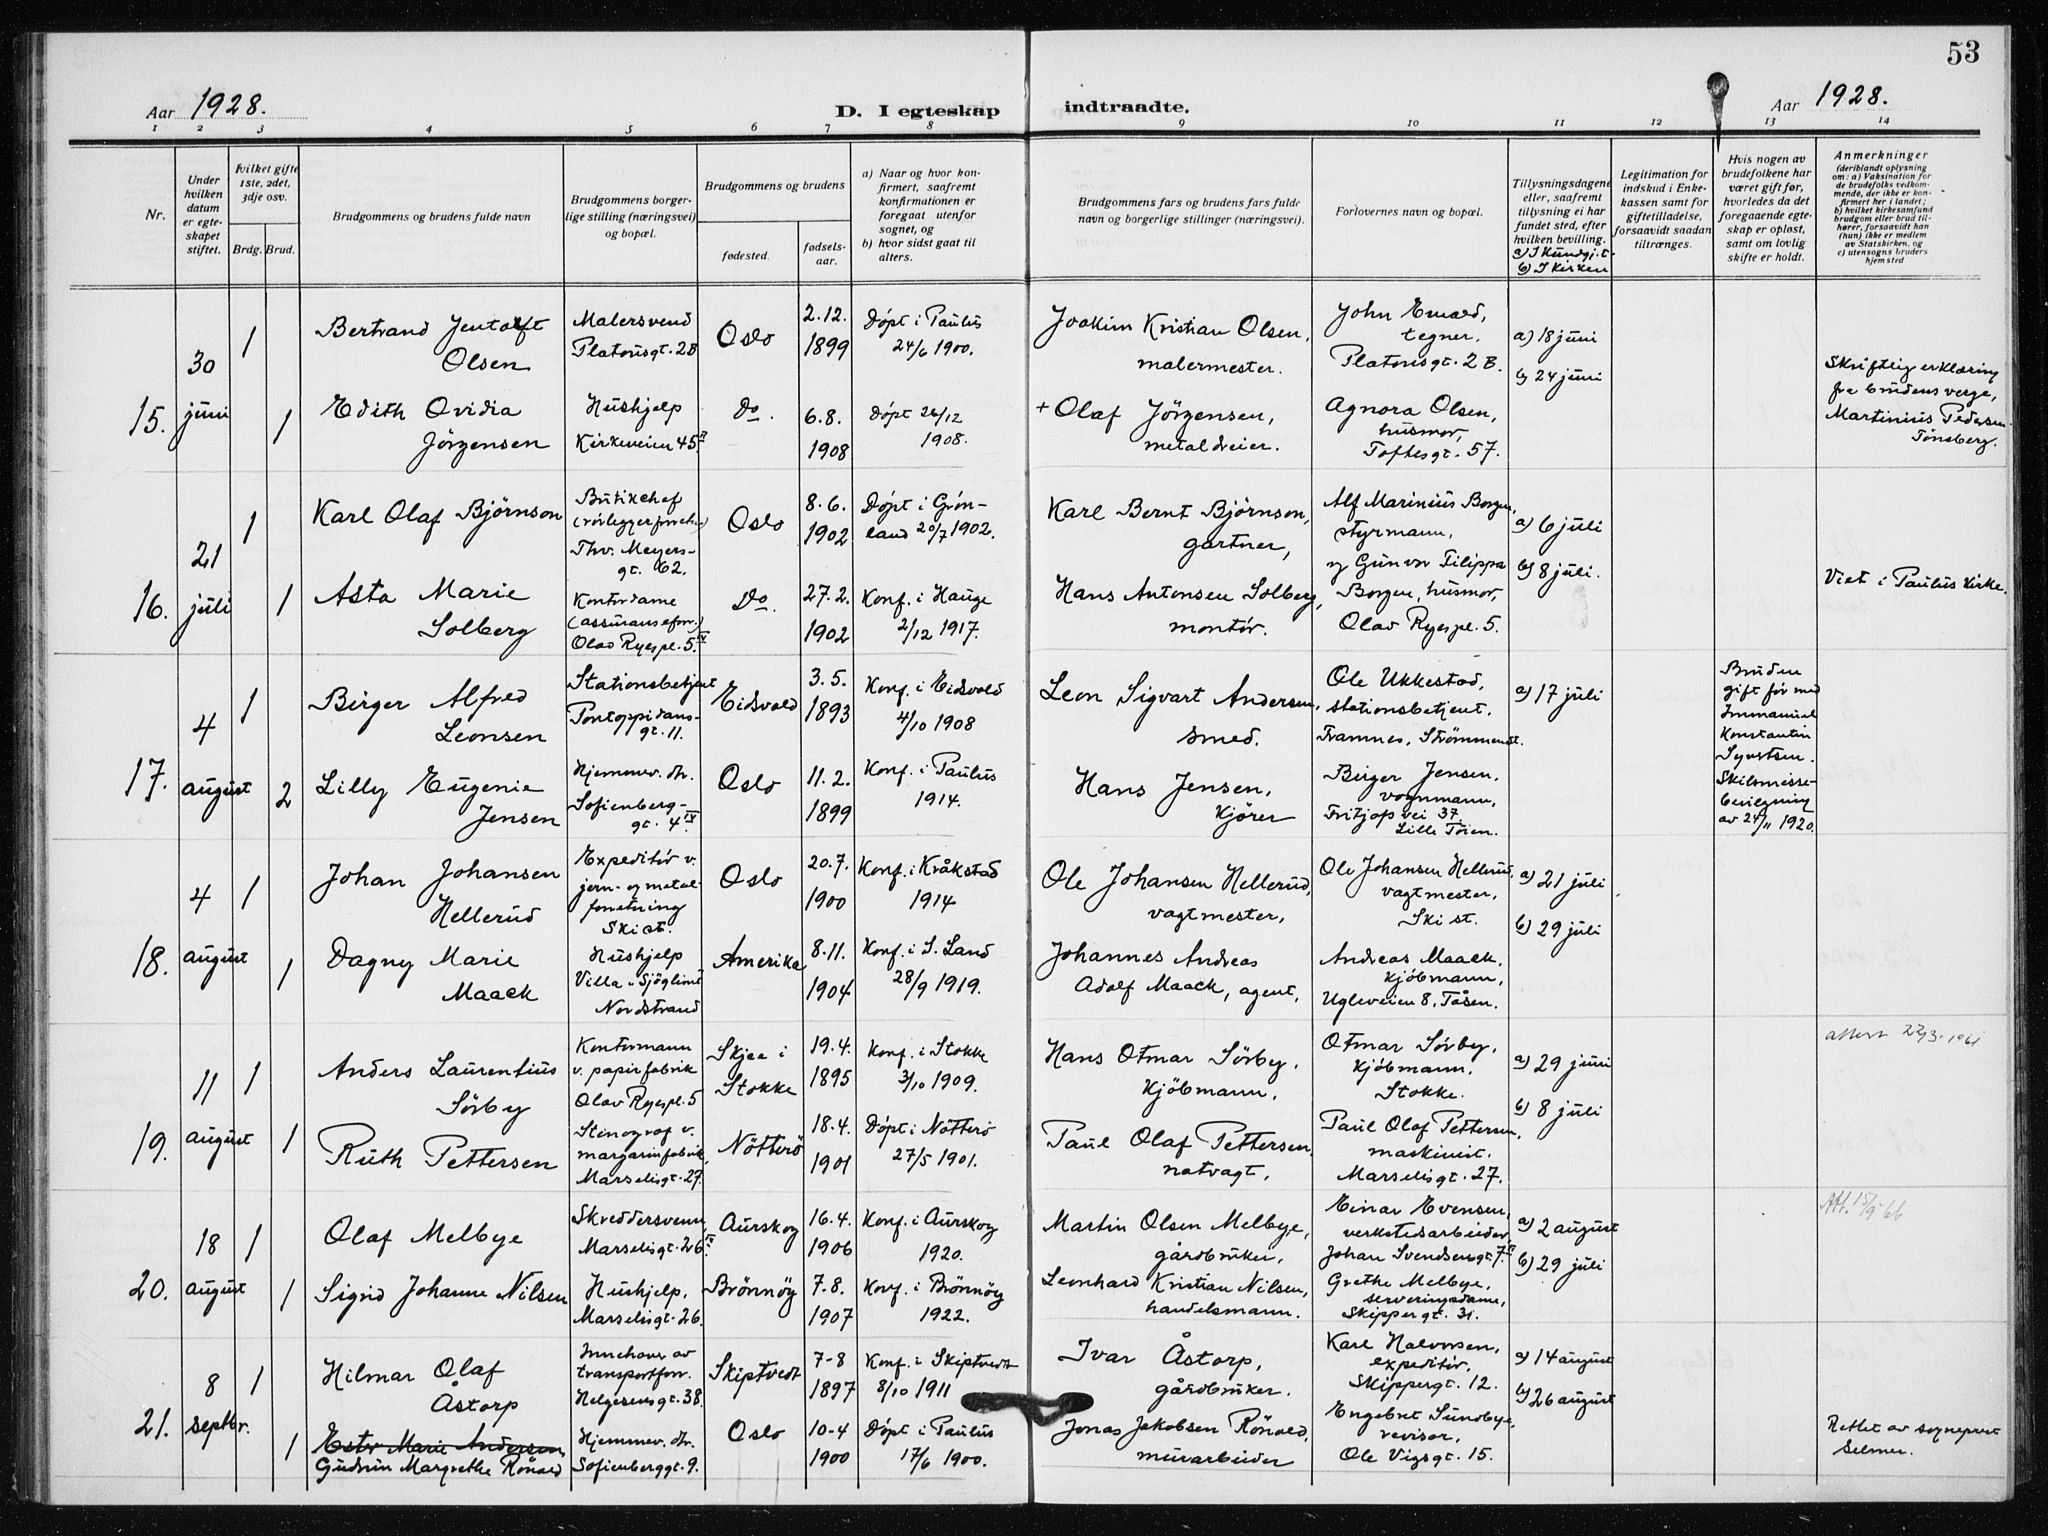 53
Aar 1928.
D. I egteskap indtraadte.
Aar 1928.
1 2 3 4 5 6 7 8 9 10 11 12 13 14
Nr.
Under
hvilken
datum
er egte-
skapet
stiftet.
hvilket gifte
1ste, 2det,
3dje osv.
Brdg. Brud.
Brudgommens og brudens fulde navn
Brudgommens borger-
lige stilling (næringsvei)
og bopæl.
Brudgommens og brudens
fødested.
fødsels-
aar.
a) Naar og hvor kon-
firmert, saafremt
konfirmationen er
foregaat utenfor
sognet, og
b) hvor sidst gaat til
alters.
Brudgommens fars og brudens fars fulde
navn og borgerlige stillinger (næringsvei).
Forlovernes navn og bopæl.
Tillysningsdagene
eller, saafremt
tillysning ei har
fundet sted, efter
hvilken bevilling.
a) I Kundgj.t.
b) I Kirken
Legitimation for
indskud i Enke-
kassen samt for
giftetilladelse,
forsaavidt saadan
tiltrænges.
Hvis nogen av
brudefolkene har
været gift før,
hvorledes da det
foregaaende egte-
skap er opløst,
samt om lovlig
skifte er holdt.
Anmerkninger
(deriblandt oplysning
om: a) Vaksination for
de brudefolks vedkom-
mende, der ikke er kon-
firmert her i landet;
b) hvilket kirkesamfund
brudgom eller brud til-
hører, forsaavidt han
(hun) ikke er medlem
av Statskirken, og
c) utensogns bruders
hjemsted
15.
30
juni
1
Bertrand Jentoft
Olsen
Malersvend
Platousgt. 2B
Oslo
2.12.
1899
Døpt i Paulus
24/6 1900.
Joakim Kristian Olsen,
malermester.
John Enead,
tegner.
Platousgt. 2 B.
a) 18 juni
b) 24 juni
1
Edith Ovidia
Jörgensen
Hushjelp
Kirkeveien 45 II
Do.
6.8.
1908
Døpt 26/12
1908.
+ Olaf Jörgensen,
metaldreier.
Agnora Olsen,
husmor,
Toftesgt. 57.
Skriftlig erklæring
fra brudens verge,
Martinius Pedersen
Tönsberg.
16.
21
juli
1
Karl Olaf Björnson
Butikchef
(rörleggerforretn.)
Thv. Meyers-
gt. 62.
Oslo
8.6.
1902
Døpt i Grön-
land 20/7 1902.
Karl Bernt Björnson,
gartner,
Alf Marinius Borgen,
styrmann,
og Gunvor Filippa
Borgen, husmor,
Olav Ryespl. 5.
a) 6 juli
b) 8 juli.
1
Asta Marie
Solberg
Kontordame
(assuranseforr.)
Olav Ryespl. 5. IV
Do.
27.2.
1902
Konf. i Hauge
2/12 1917.
Hans Antonsen Solberg,
montör.
Viet i Paulus Kirke.
17.
4
august
1
Birger Alfred
Leonsen
Stationsbetjent
Pontoppidans-
gt. 11.
Eidsvold
3.5.
1893
Konf. i Eidsvold
4/10 1908
Leon Sigvart Andersen,
smed.
Ole Ukkestad,
stationsbetjent.
Framnes, Strömmen st.
a) 17 juli
Bruden
gift för med
Immanuel
Konstantin
Syvertsen.
Skilsmisse-
bevilgning
av 24/11 1920.
2
Lilly Eugenie
Jensen
Hjemmev. dtr.
Sofienberg-
gt. 4 IV
Oslo
11.2.
1899
Konf. i Paulus
1914.
Hans Jensen,
Kjörer
Birger Jensen,
vognmann,
Fritjofs vei 37.
Lille Töien.
18.
4
august
1
Johan Johansen
Hellerud
Expeditör v.
jern- og metal-
forretning
Ski st.
Oslo
20.7.
1900
Konf. i Kråkstad
1914
Ole Johansen Hellerud,
vagtmester,
Ole Johansen Hellerud,
vagtmester,
Ski st.
a) 21 juli
b) 29 juli
1
Dagny Marie
Maack
Hushjelp
Villa „Sjöglimt"
Nordstrand
Amerika
8.11.
1904
Konf. i S. Land
28/9 1919.
Johannes Andreas
Adolf Maack, agent,
Andreas Maack,
Kjöbmann,
Ugleveien 8, Tåsen.
19.
11
august
1
Anders Laurentius
Sörby
Kontormann
v. papirfabrik
Olav Ryespl. 5
Skjee i
Stokke
19.4.
1895
Konf. i Stokke
3/10 1909.
Hans Otmar Sörby,
Kjöbmann,
Otmar Sörby,
Kjöbmann,
Stokke.
a) 29 juni
b) 8 juli
attest 27/3.1961
1
Ruth Pettersen
Stenograf v.
margarinfabrik,
Marselisgt. 27.
Nötterö
18.4.
1901
Døpt i Nötterö
27/5 1901.
Paul Olaf Pettersen,
natvagt,
Paul Olaf Pettersen,
maskinist.
Marselisgt. 27.
20.
18
august
1
Olaf Melbye
Skreddersvenn,
Marselisgt. 26 II.
Aurskog
16.4.
1906
Konf. i Aurskog
1920.
Martin Olsen Melbye,
gårdbruker,
Einar Evensen,
verkstedsarbeider,
Johan Svendsensgt. 7 II
a) 2 august
b) 29 juli
Att. 15/9-66
1
Sigrid Johanne Nilsen
Hushjelp,
Marselisgt. 26.
Brönnöy
7.8.
1907
Konf. i Brönnöy
1922.
Leonhard Kristian Nilsen,
handelsmann.
Grethe Melbye,
serveringsdame,
Skippergt. 31.
21.
8
septbr.
1
Hilmar Olaf
Åstorp
Innehaver av
transportforr.
Helgesensgt. 38.
Skiptvedt
7-8
1897
Konf. i Skiptvedt
8/10 1911
Ivar Åstorp,
gårdbruker.
Karl Halvorsen,
expeditör,
Skippergt. 12.
a) 14 august
b) 26 august
1
Ester Marie Andersen
Gudrun Margrethe Rönold
Hjemmev. dtr.
Sofienberggt. 9.
Oslo
10-4
1900
Døpt i Paulus
17/6 1900.
Jonas Jakobsen Rönold,
murarbeider
Engebret Sundbye,
revisor,
Ole Vigsgt. 15.
Rettet av sogneprest
Selmer.